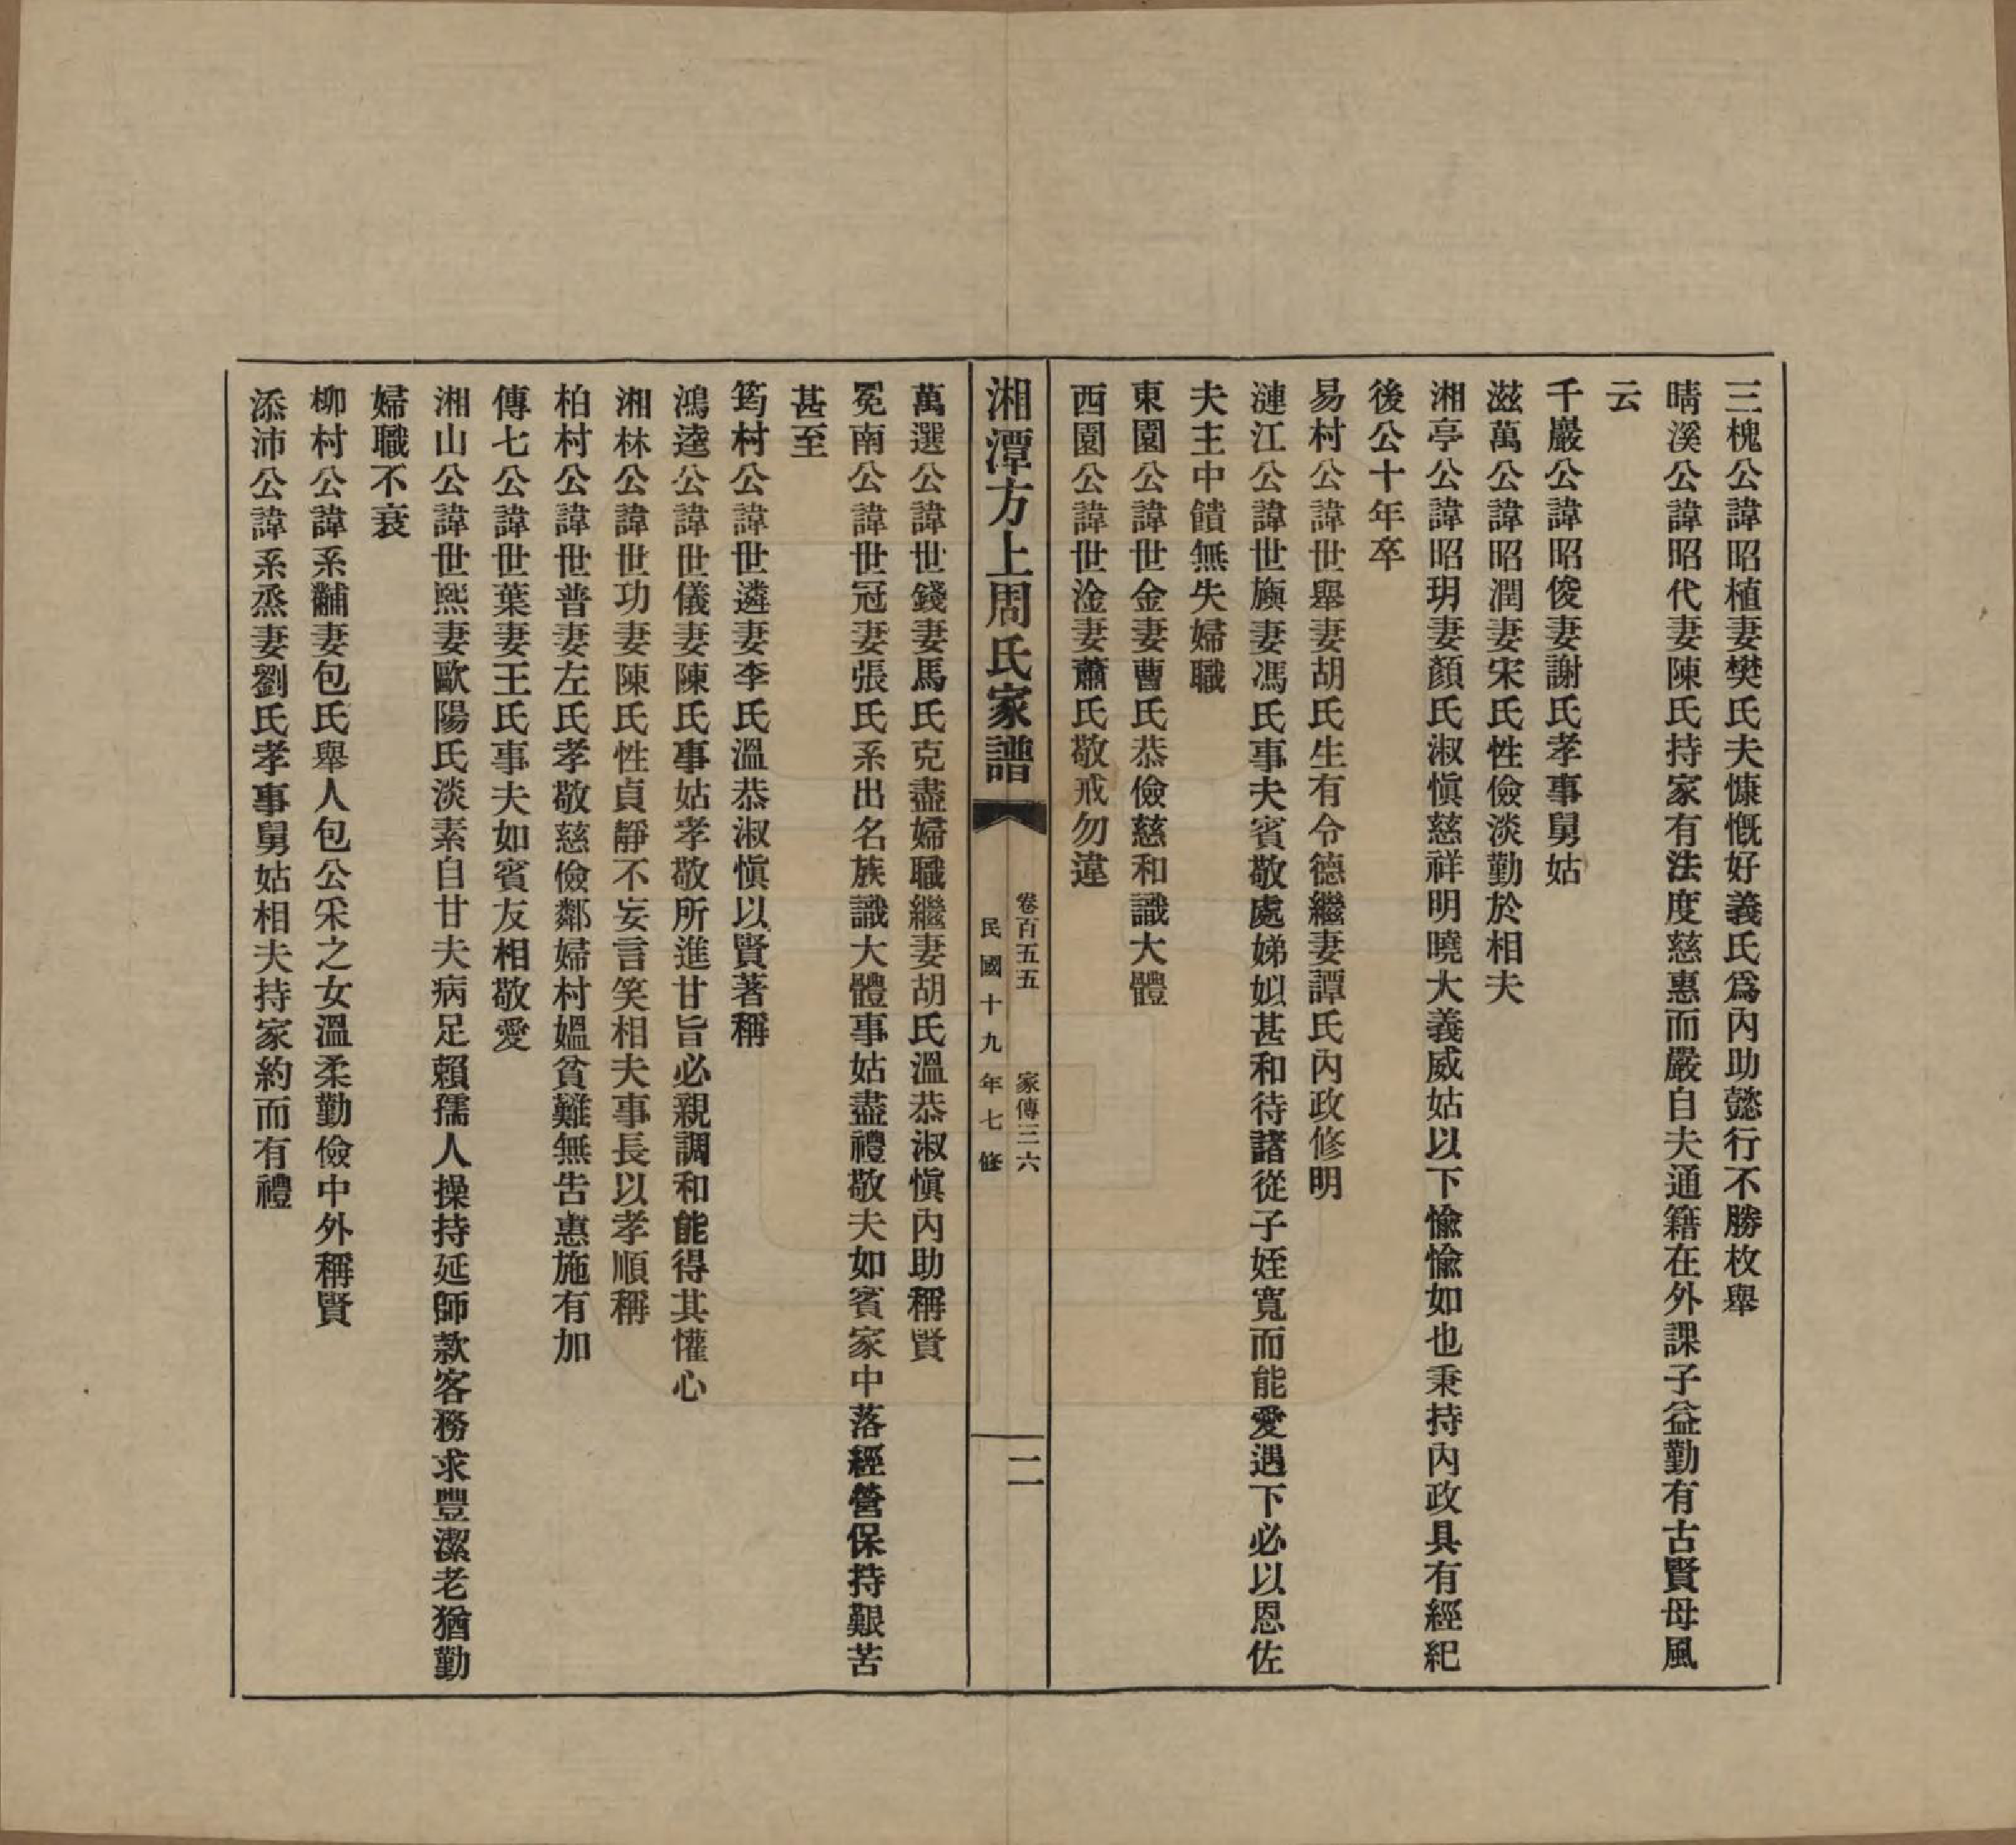 三槐公諱昭植妻樊氏夫慷慨好義氏爲內助懿行不勝枚舉
晴溪公諱昭代妻陳氏持家有法度慈惠而嚴自夫通籍在外課子益勤有古賢母風
云
千巖公諱昭俊妻謝氏孝事舅姑
滋萬公諱昭潤妻宋氏性儉淡勤於相夫
湘亭公諱昭玥妻顏氏淑愼慈祥明曉大義威姑以下愉愉如也秉持內政具有經紀
後公十年卒
易村公諱世舉妻胡氏生有令德繼妻譚氏內政修明
漣江公諱世旟妻馮氏事夫賓敬處娣姒甚和待諸從子姪寬而能愛遇下必以恩佐
夫主中饋無失婦職
東園公諱世金妻曹氏恭儉慈和識大體
西園公諱世淦妻蕭氏敬戒勿違
湘潭方上周氏家譜
卷百五五 家傳三六
民國十九年七修
二
萬選公諱世錢妻馬氏克盡婦職繼妻胡氏溫恭淑愼內助稱賢
冕南公諱世冠妻張氏系出名族識大體事姑盡禮敬夫如賓家中落經營保持艱苦
甚至
筠村公諱世遴妻李氏溫恭淑愼以賢著稱
鴻逵公諱世儀妻陳氏事姑孝敬所進甘旨必親調和能得其懽心
湘林公諱世功妻陳氏性貞靜不妄言笑相夫事長以孝順稱
柏村公諱世普妻左氏孝敬慈儉鄰婦村媼貧難無告惠施有加
傳七公諱世葉妻王氏事夫如賓友相敬愛
湘山公諱世熙妻歐陽氏淡素自甘夫病足賴孺人操持延師款客務求豐潔老猶勤
婦職不衰
柳村公諱系黼妻包氏舉人包公采之女溫柔勤儉中外稱賢
添沛公諱系烝妻劉氏孝事舅姑相夫持家約而有禮